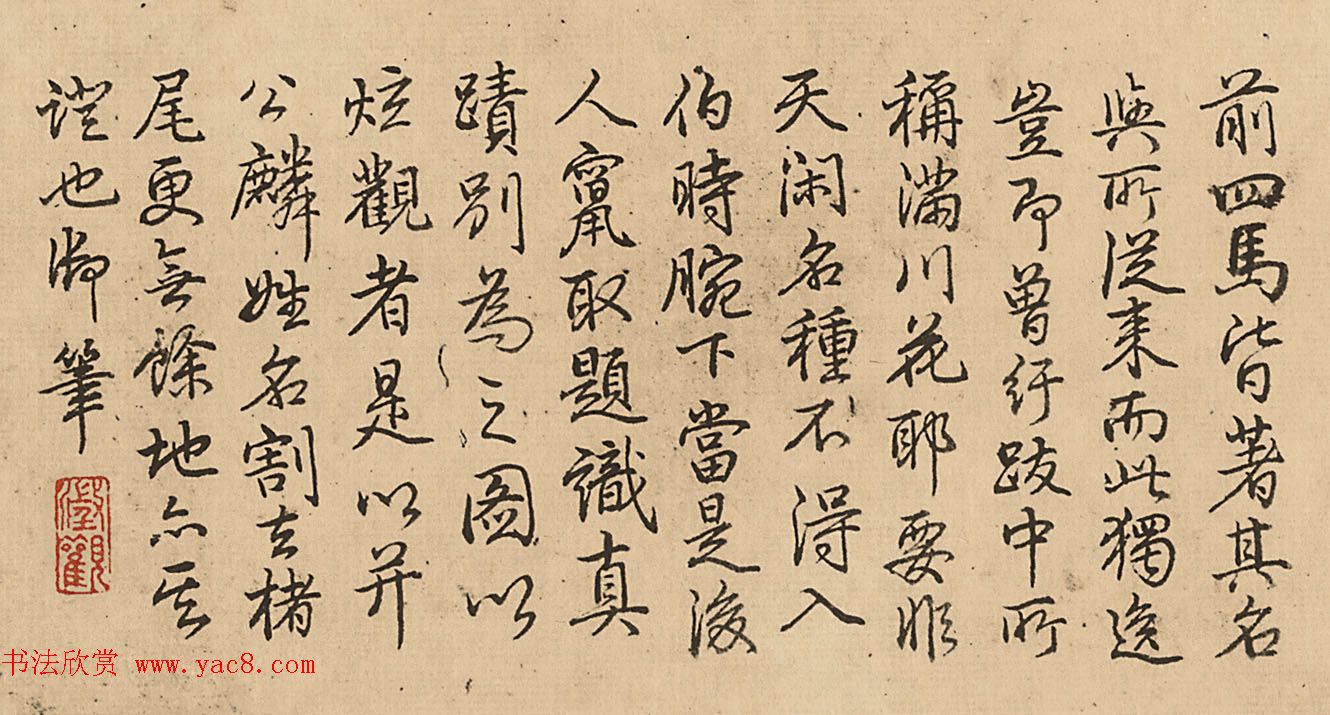 前四馬皆著其名
與所從來而此獨逸
豈即曾紆跋中所
稱滿川花耶要非
天閑名種不得入
伯時腕下當是後
人竄取題識真
蹟別為之圖以
炫觀者是以并
公麟姓名割去楮
尾更無餘地亦其
證也御筆
澂觀
书法欣赏 www.yac8.com